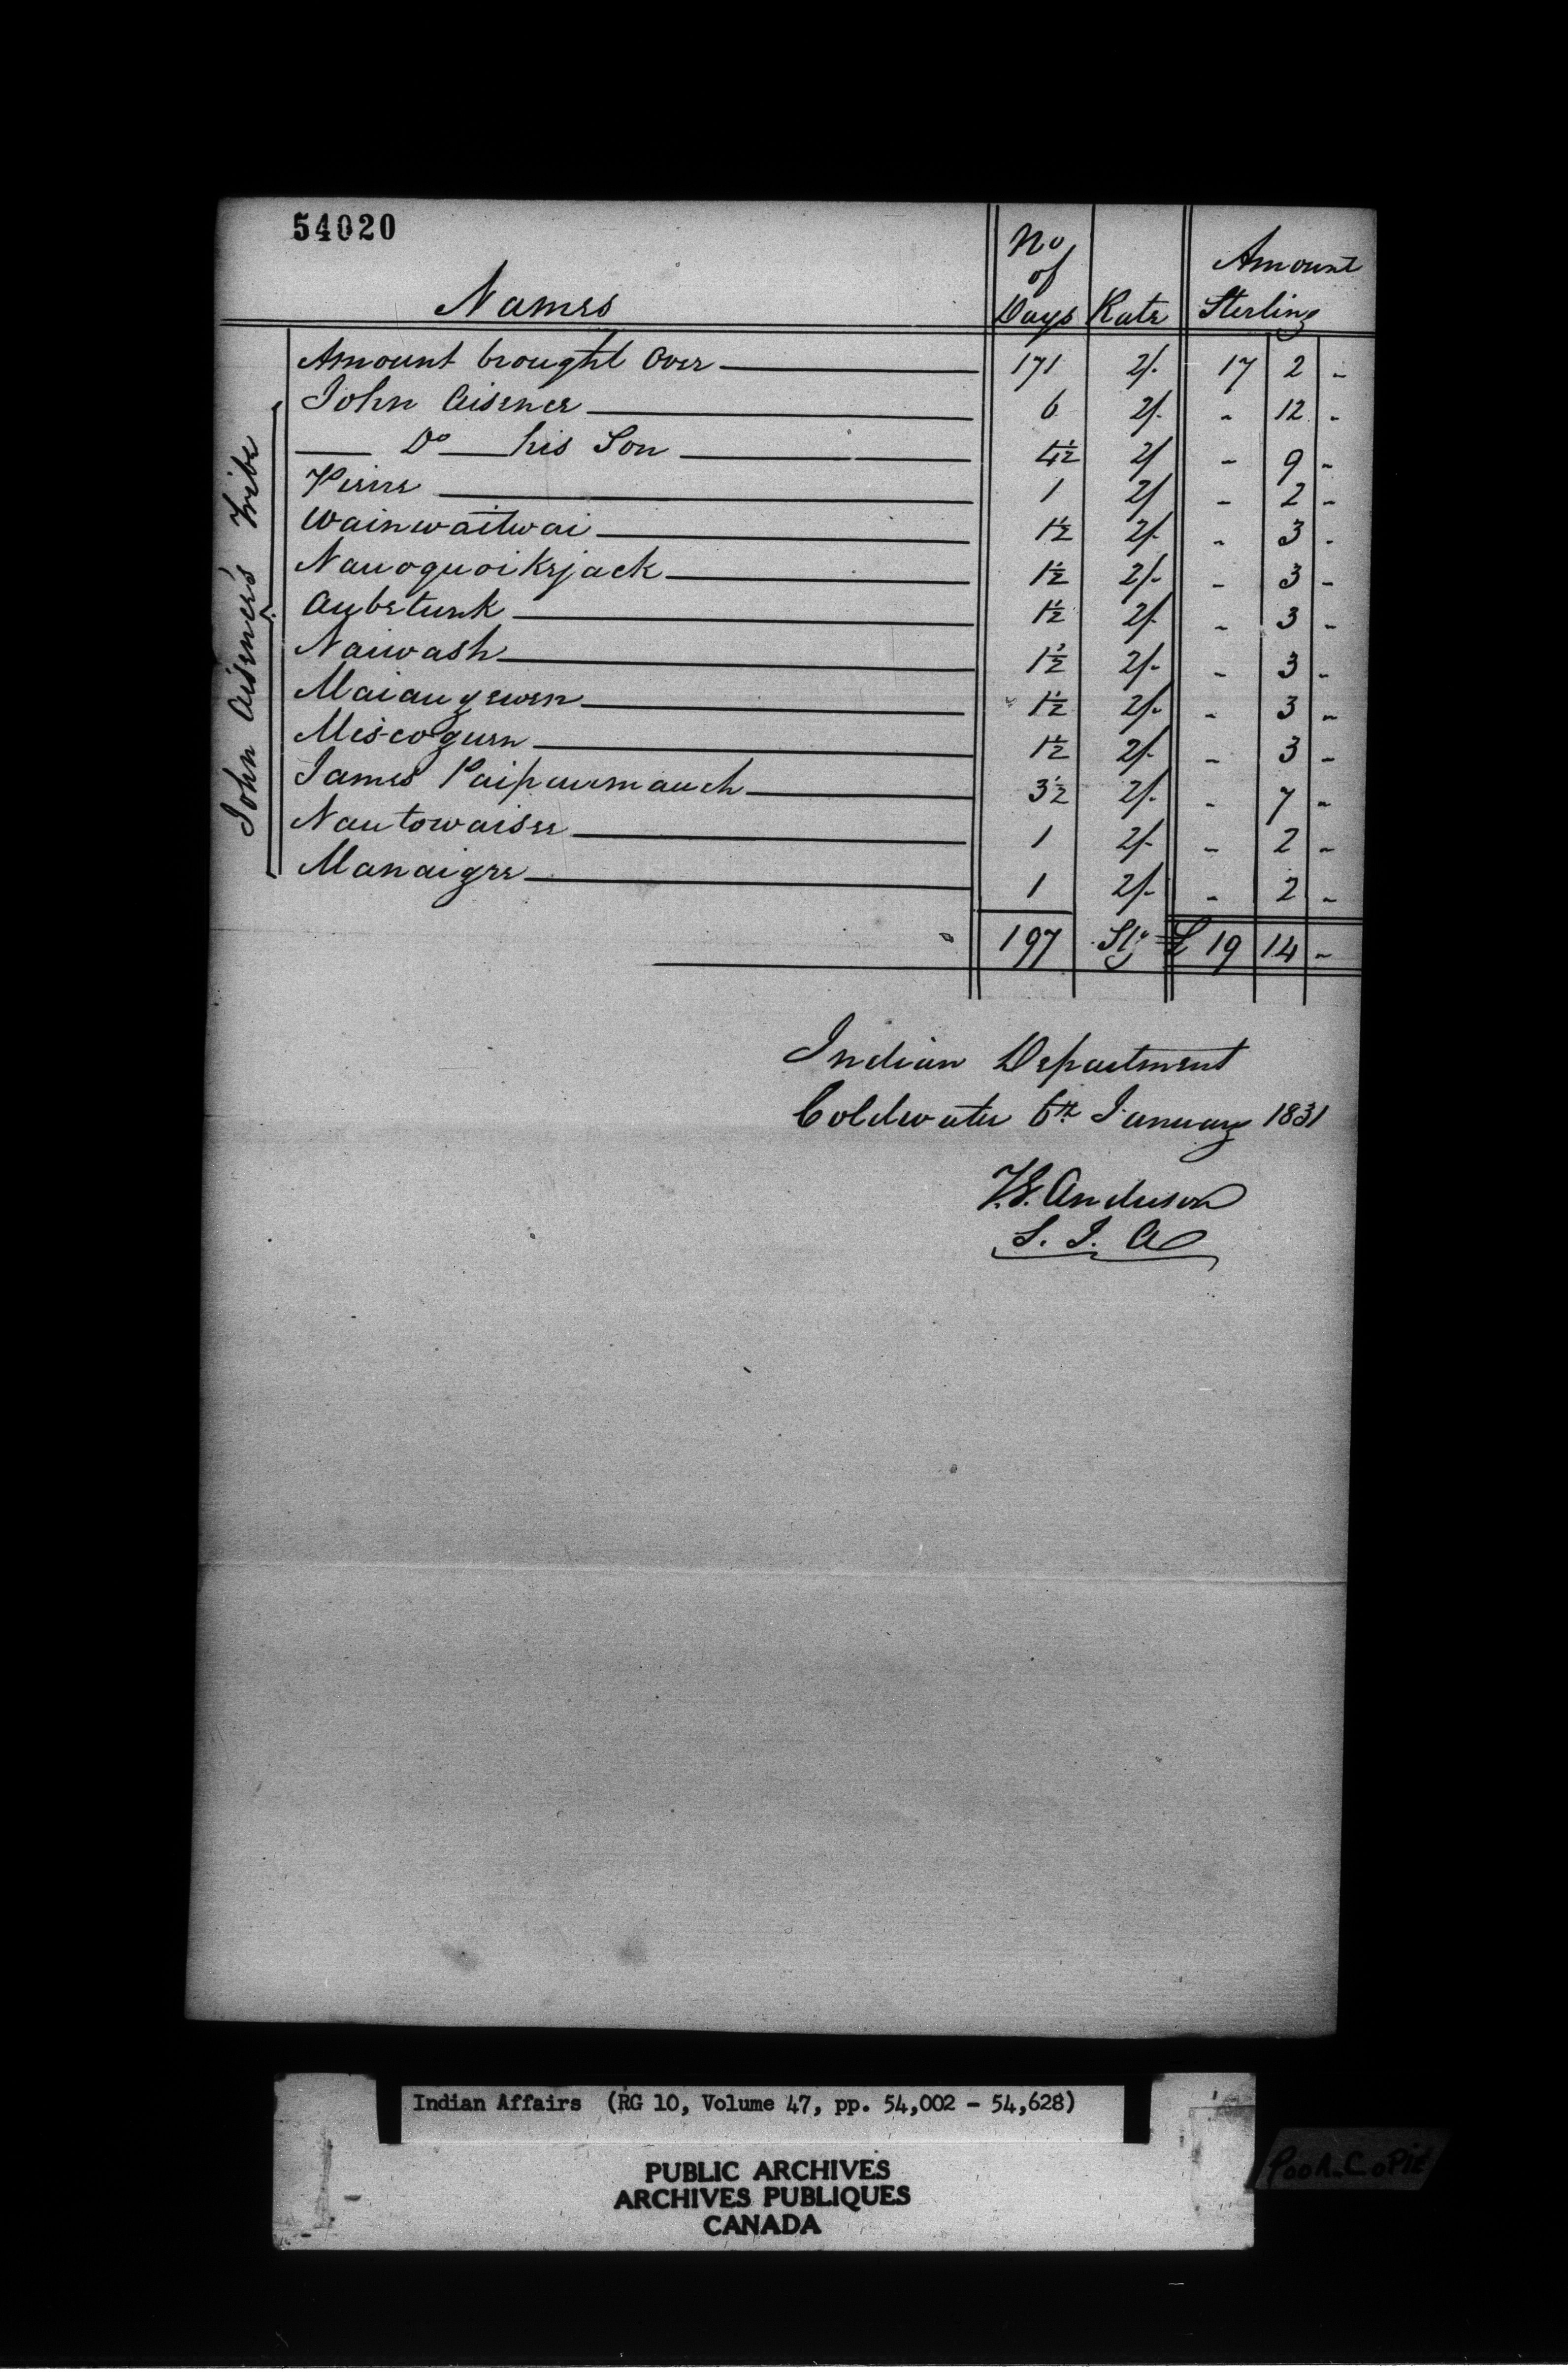 54020
Names No of Days Rate Amount Sterling
John Aisence's Tribe
Amount brought Over 171 2/- 17 2 -
John Aisence 6 2/- - 12 -
Do his Son 4½ 2/ - 9 -
1 2/ - 2 -
Wainwaitwai 1½ 2/- - 3 -
Nauoquoikejack 1½ 2/- - 3 -
Aubetunk 1½ 2/- - 3 -
Naiwash 1½ 2/- - 3 -
Maiaugewen 1½ 2/- - 3 -
Miscoguen 1½ 2/- - 3 -
James Paipaumauch 3½ 2/- - 7 -
Nautowaisee 1 2/- - 2 -
Manaigee 1 2/- - 2 -
197 Stg £ 19 14 -
Indian Department
Coldwater 6th January 1831
T.G. Anderson
S. I. A
Indian Affairs (RG 10, Volume 47, pp. 54,002 - 54,628)
PUBLIC ARCHIVES
ARCHIVES PUBLIQUES
CANADA
POOR COPIE